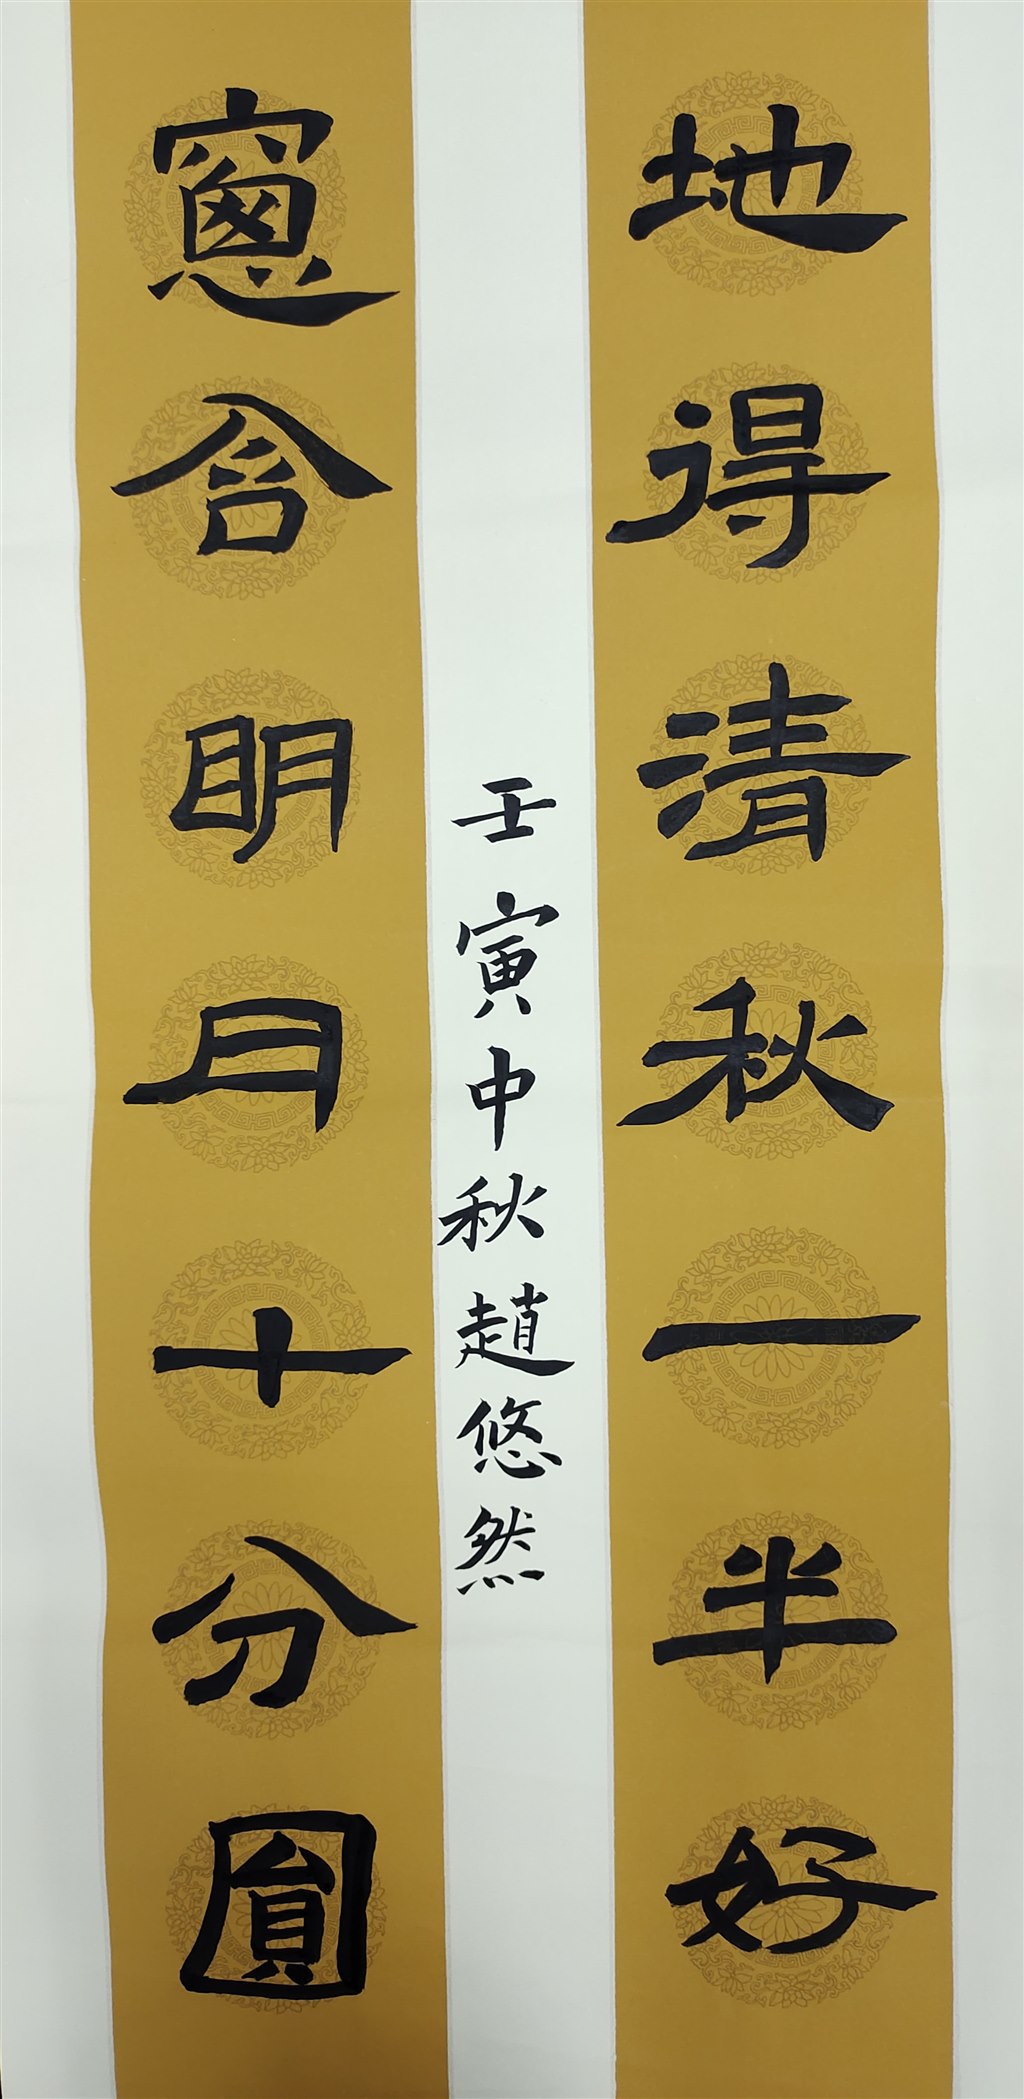 地得清秋一半好
窻含明月十分圓
壬寅中秋趙悠然